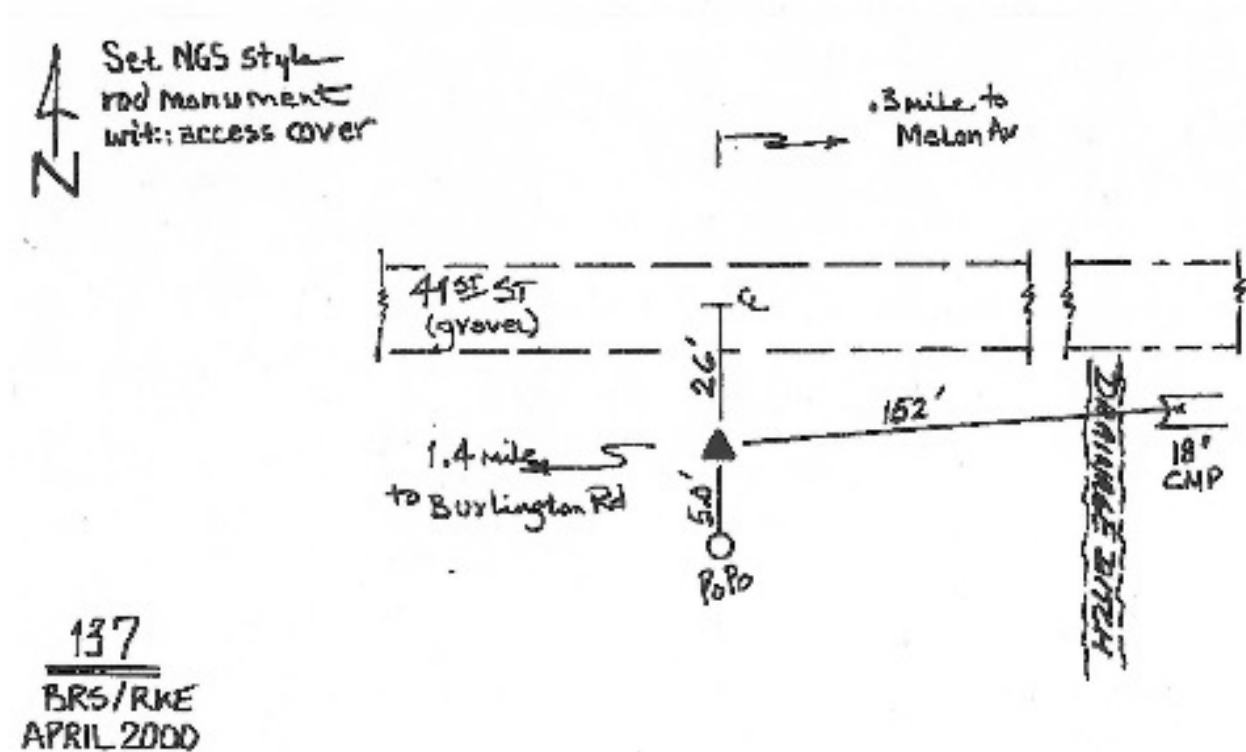 Set NGS style
rod monument
with access cover
N
.3 mile to
Melon Av
41ST ST
(gravel)
CL
26'
152'
1.4 mile
to Burlington Rd
5.0'
PoPo
18"
CMP
DRAINAGE DITCH
137
BRS/RKE
APRIL 2000